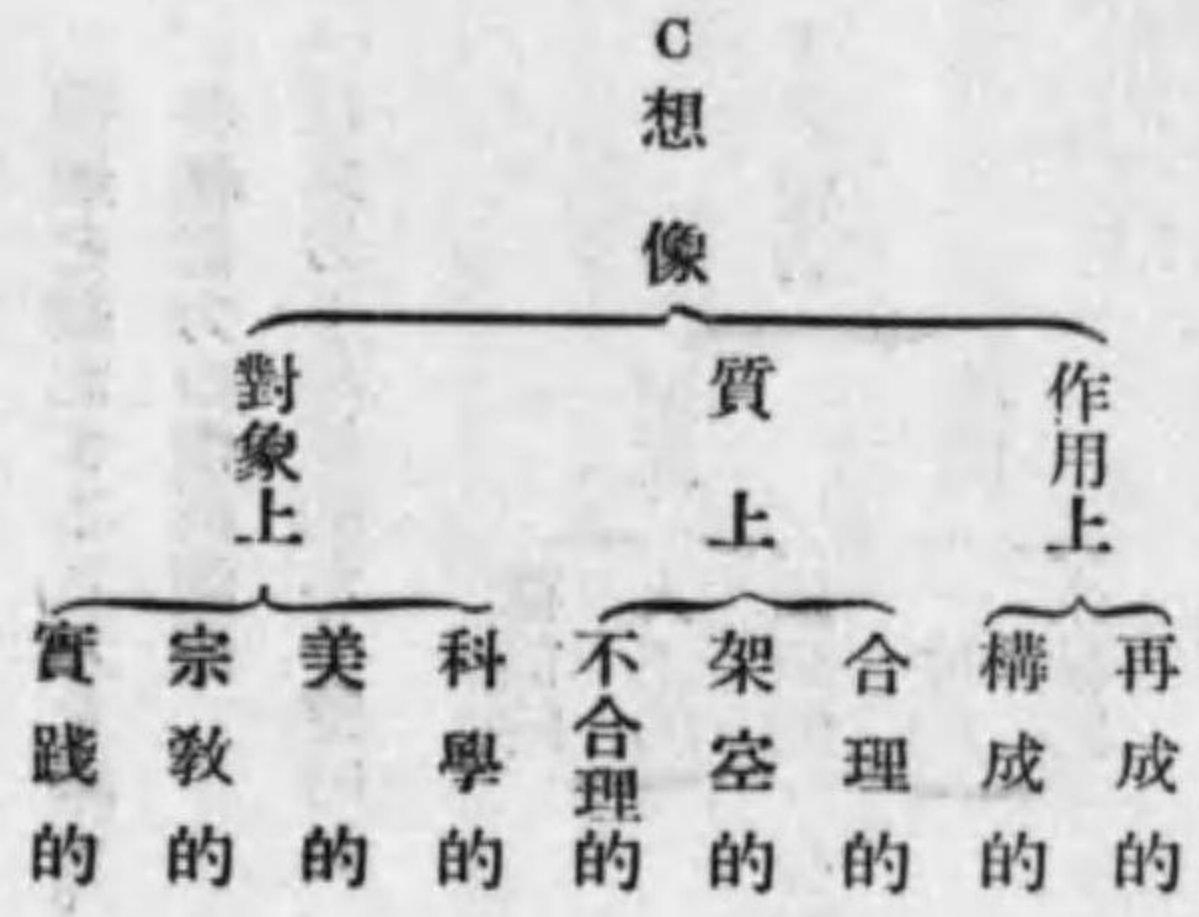 C想像
作用上
再成的
構成的
質上
合理的
架空的
不合理的
對象上
科學的
美的
宗教的
實踐的